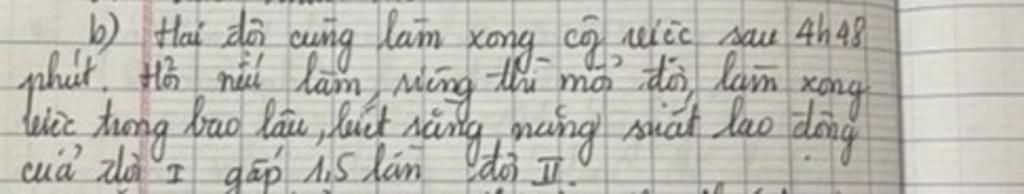 b) Hai đội cùng làm xong cg việc sau 4h48
phút. Hỏi nếu làm riêng thì mỗi đội làm xong
việc trong bao lâu, biết rằng năng suất lao động
của đội I gấp 1,5 lần đội II.